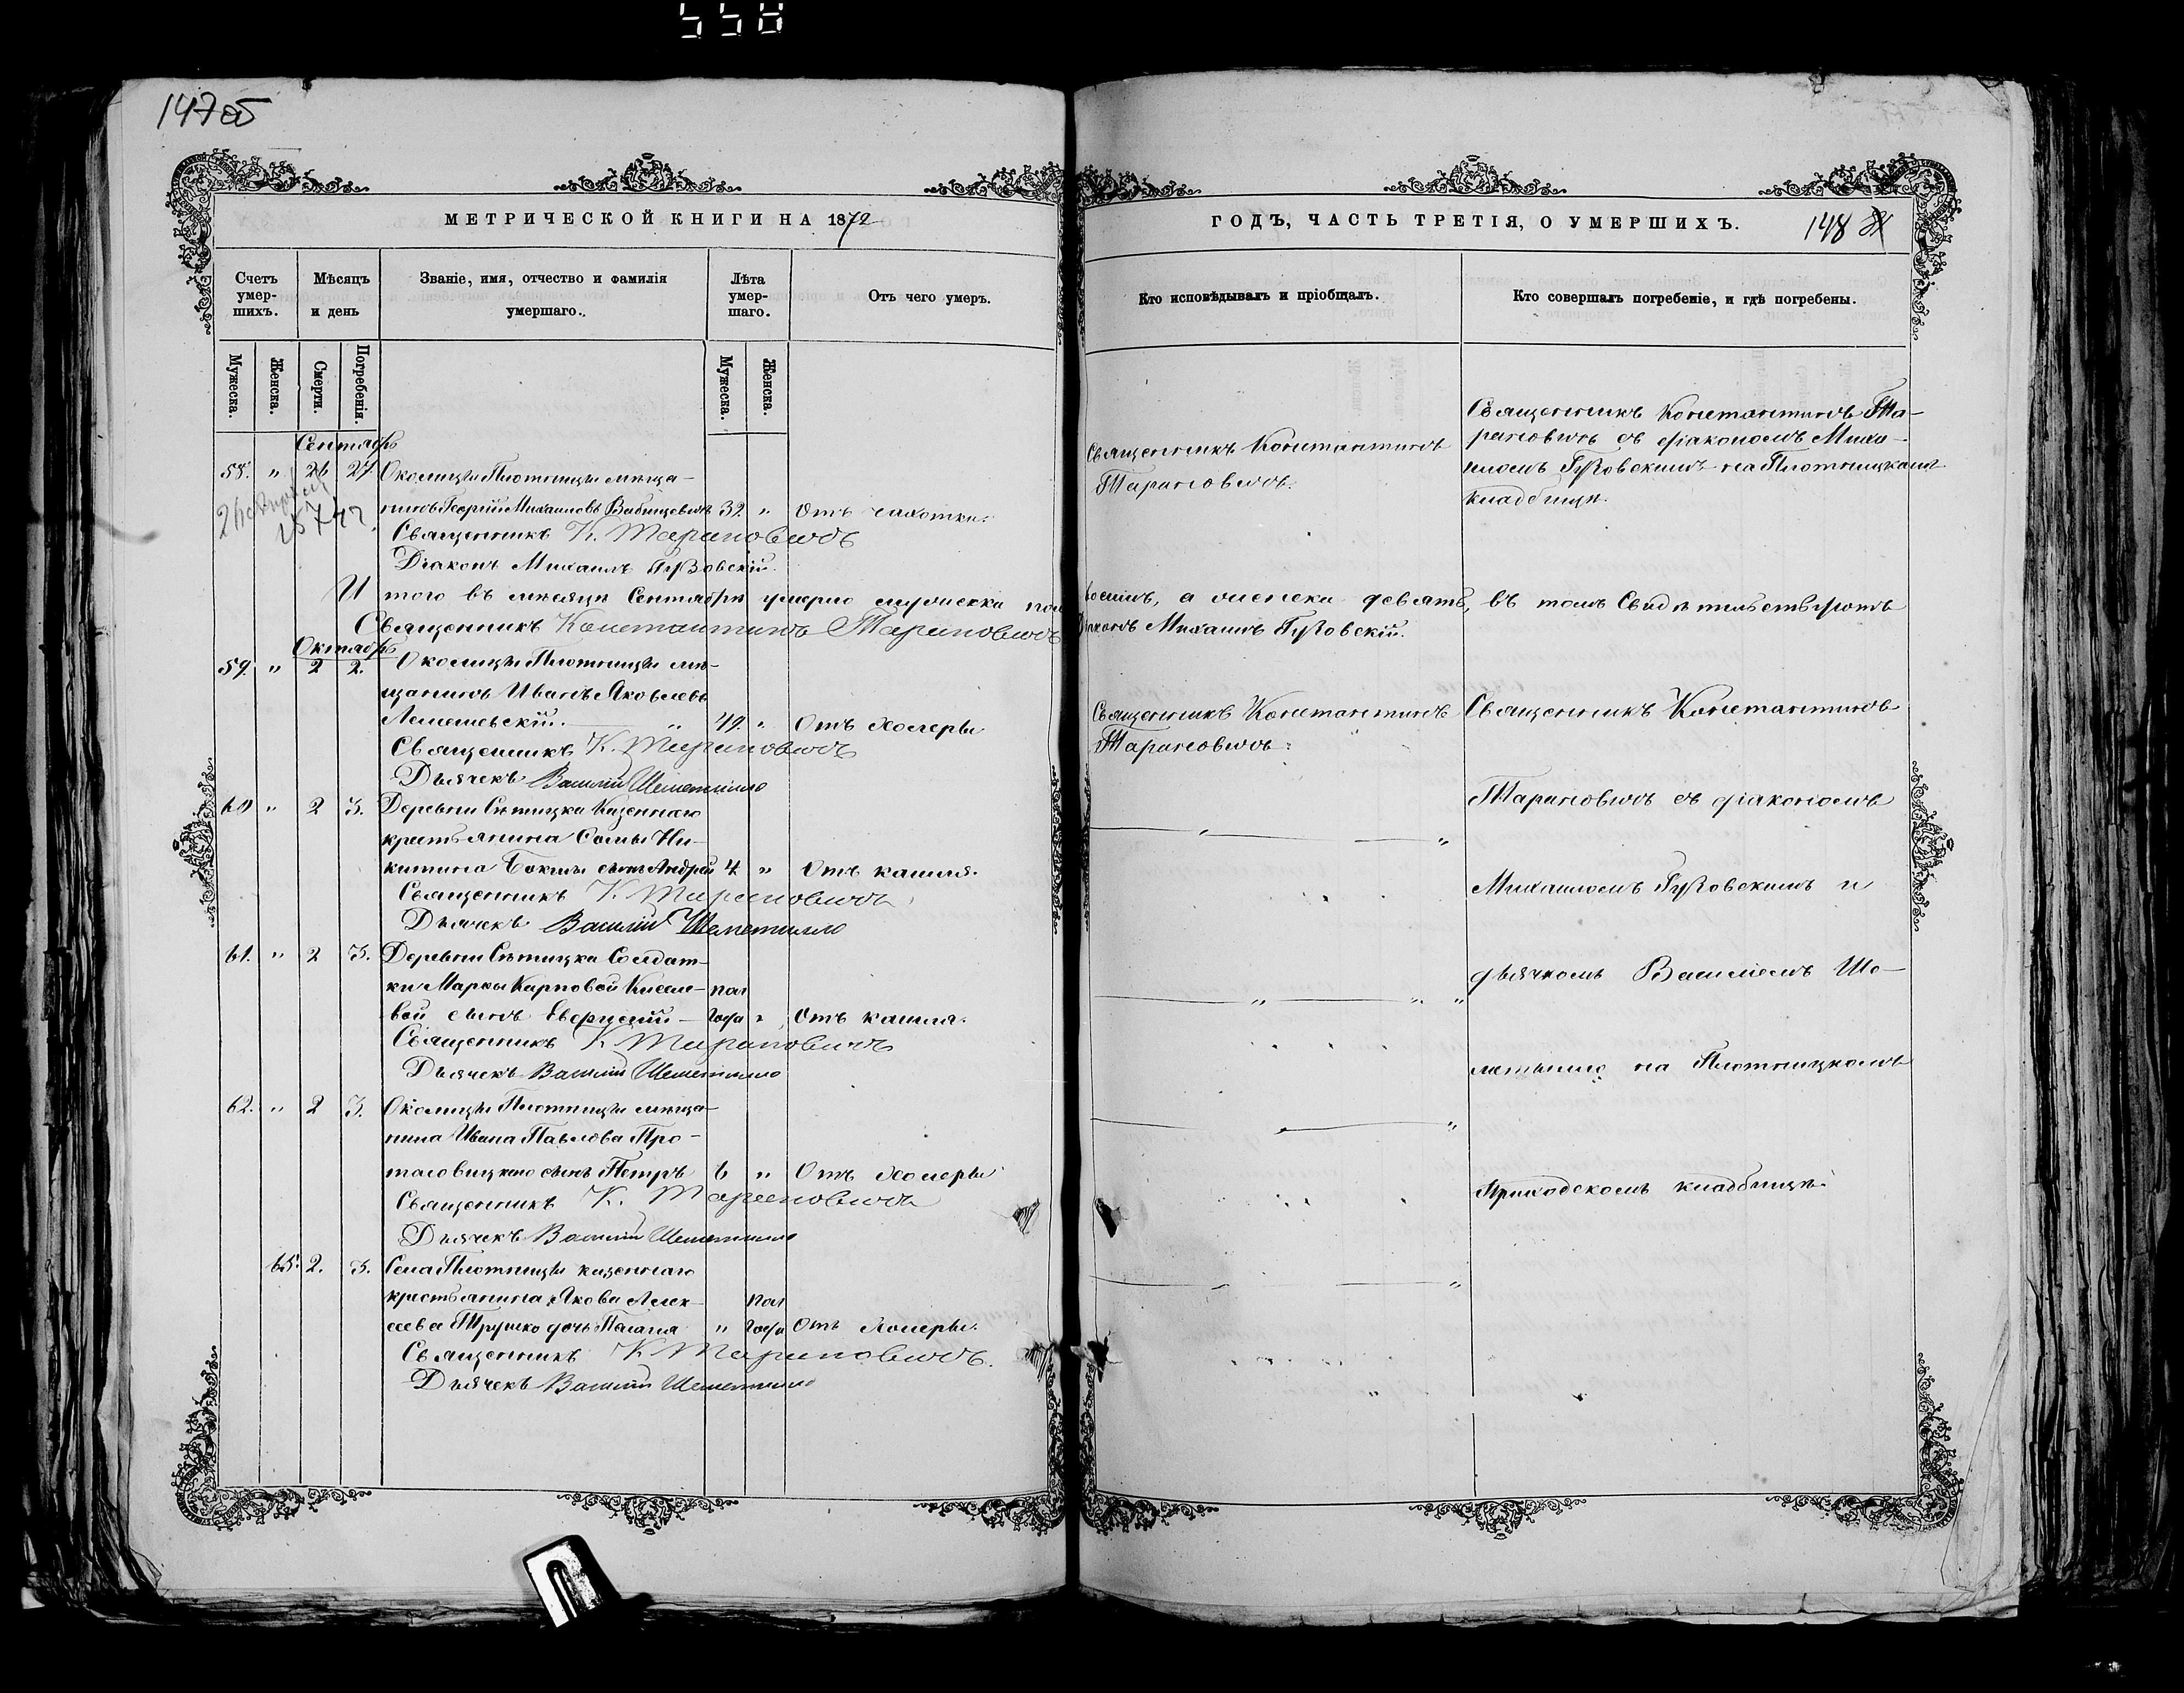 558
147об
МЕТРИЧЕСКОЙ КНИГИ НА 1872
ГОДЪ, ЧАСТЬ ТРЕТІЯ, О УМЕРШИХЪ.
148
Счетъ умер-шихъ.
Мѣсяцъ и день
Званіе, имя, отчество и фамилія умершаго.
Лѣта умер-шаго.
Отъ чего умеръ.
Кто исповѣдывалъ и пріобщалъ.
Кто совершалъ погребеніе, и гдѣ погребены.
Мужеска.
Женска.
Смерти.
Погребенія.
Мужеска.
Женска.
Сентябрь
58. " 26 27 Околицы Плотницы мѣща-
нинъ Георгій Михаиловъ 32 " Отъ чахотки.
Священникъ К. Тарановичъ
Діаконъ Михаилъ Гузовскій.
Священникъ Константинъ
Тарановичъ.
Священникъ Константинъ Та-
рановичъ съ діакономъ Миха-
иломъ Гузовскимъ на Плотницкомъ
кладбищѣ.
Итого въ мѣсяцѣ Сентябрѣ умерло мужеска пола
восемь, а женска девять, въ томъ Свидѣтельствуютъ
Священникъ Константинъ Тарановичъ
Діаконъ Михаилъ Гузовскій.
Октябрь
59. " 2 2. Околицы Плотницы мѣ-
щанинъ Иванъ Яковлевъ
Лемешевскій. " 42. " Отъ холеры
Священникъ К. Тарановичъ
Дьячекъ Василій Шеметилло
Священникъ Константинъ
Тарановичъ.
Священникъ Константинъ
60 " 2 3. Деревни Сѣтицка Казеннаго
крестьянина Сомы Ни-
китина сынъ Андрей 4 " Отъ кашля.
Священникъ К. Тарановичъ
Дьячекъ Василій Шеметилло
Тарановичъ съ діакономъ
Михаиломъ Гузовскимъ и
61. " 2 3. Деревни Сѣтицка Солдат-
ки Марѳы Карповой Кисле- пол
вой сынъ года " Отъ кашля.
Священникъ К. Тарановичъ
Дьячекъ Василій Шеметилло
дьячкомъ Василіемъ Ше-
метилло на Плотницкомъ
62. " 2 3. Околицы Плотницы мѣща-
нина Ивана Павлова Про-
таковицкаго сынъ Петръ 6 " Отъ холеры
Священникъ К. Тарановичъ
Дьячекъ Василій Шеметилло
Приходскомъ кладбищѣ.
65. 2. 3. Села Плотницы казеннаго
крестьянина Якова Алек- пол
сѣева Трушко дочь " года Отъ холеры.
Священникъ К. Тарановичъ.
Дьячекъ Василій Шеметилло